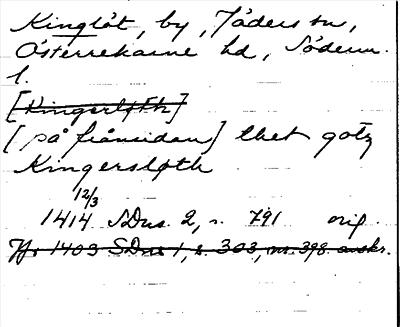 Kinglöt, by, Jäders sn,
Österrekarne hd, Söderm.
l.
[Kingerløth]
[på frånsidan] thet gotz
Kingersløth
12/3
1414 SDns 2, s. 791 orig.
Jfr 1403 SDns 1, s. 303, nr 398 avskr.